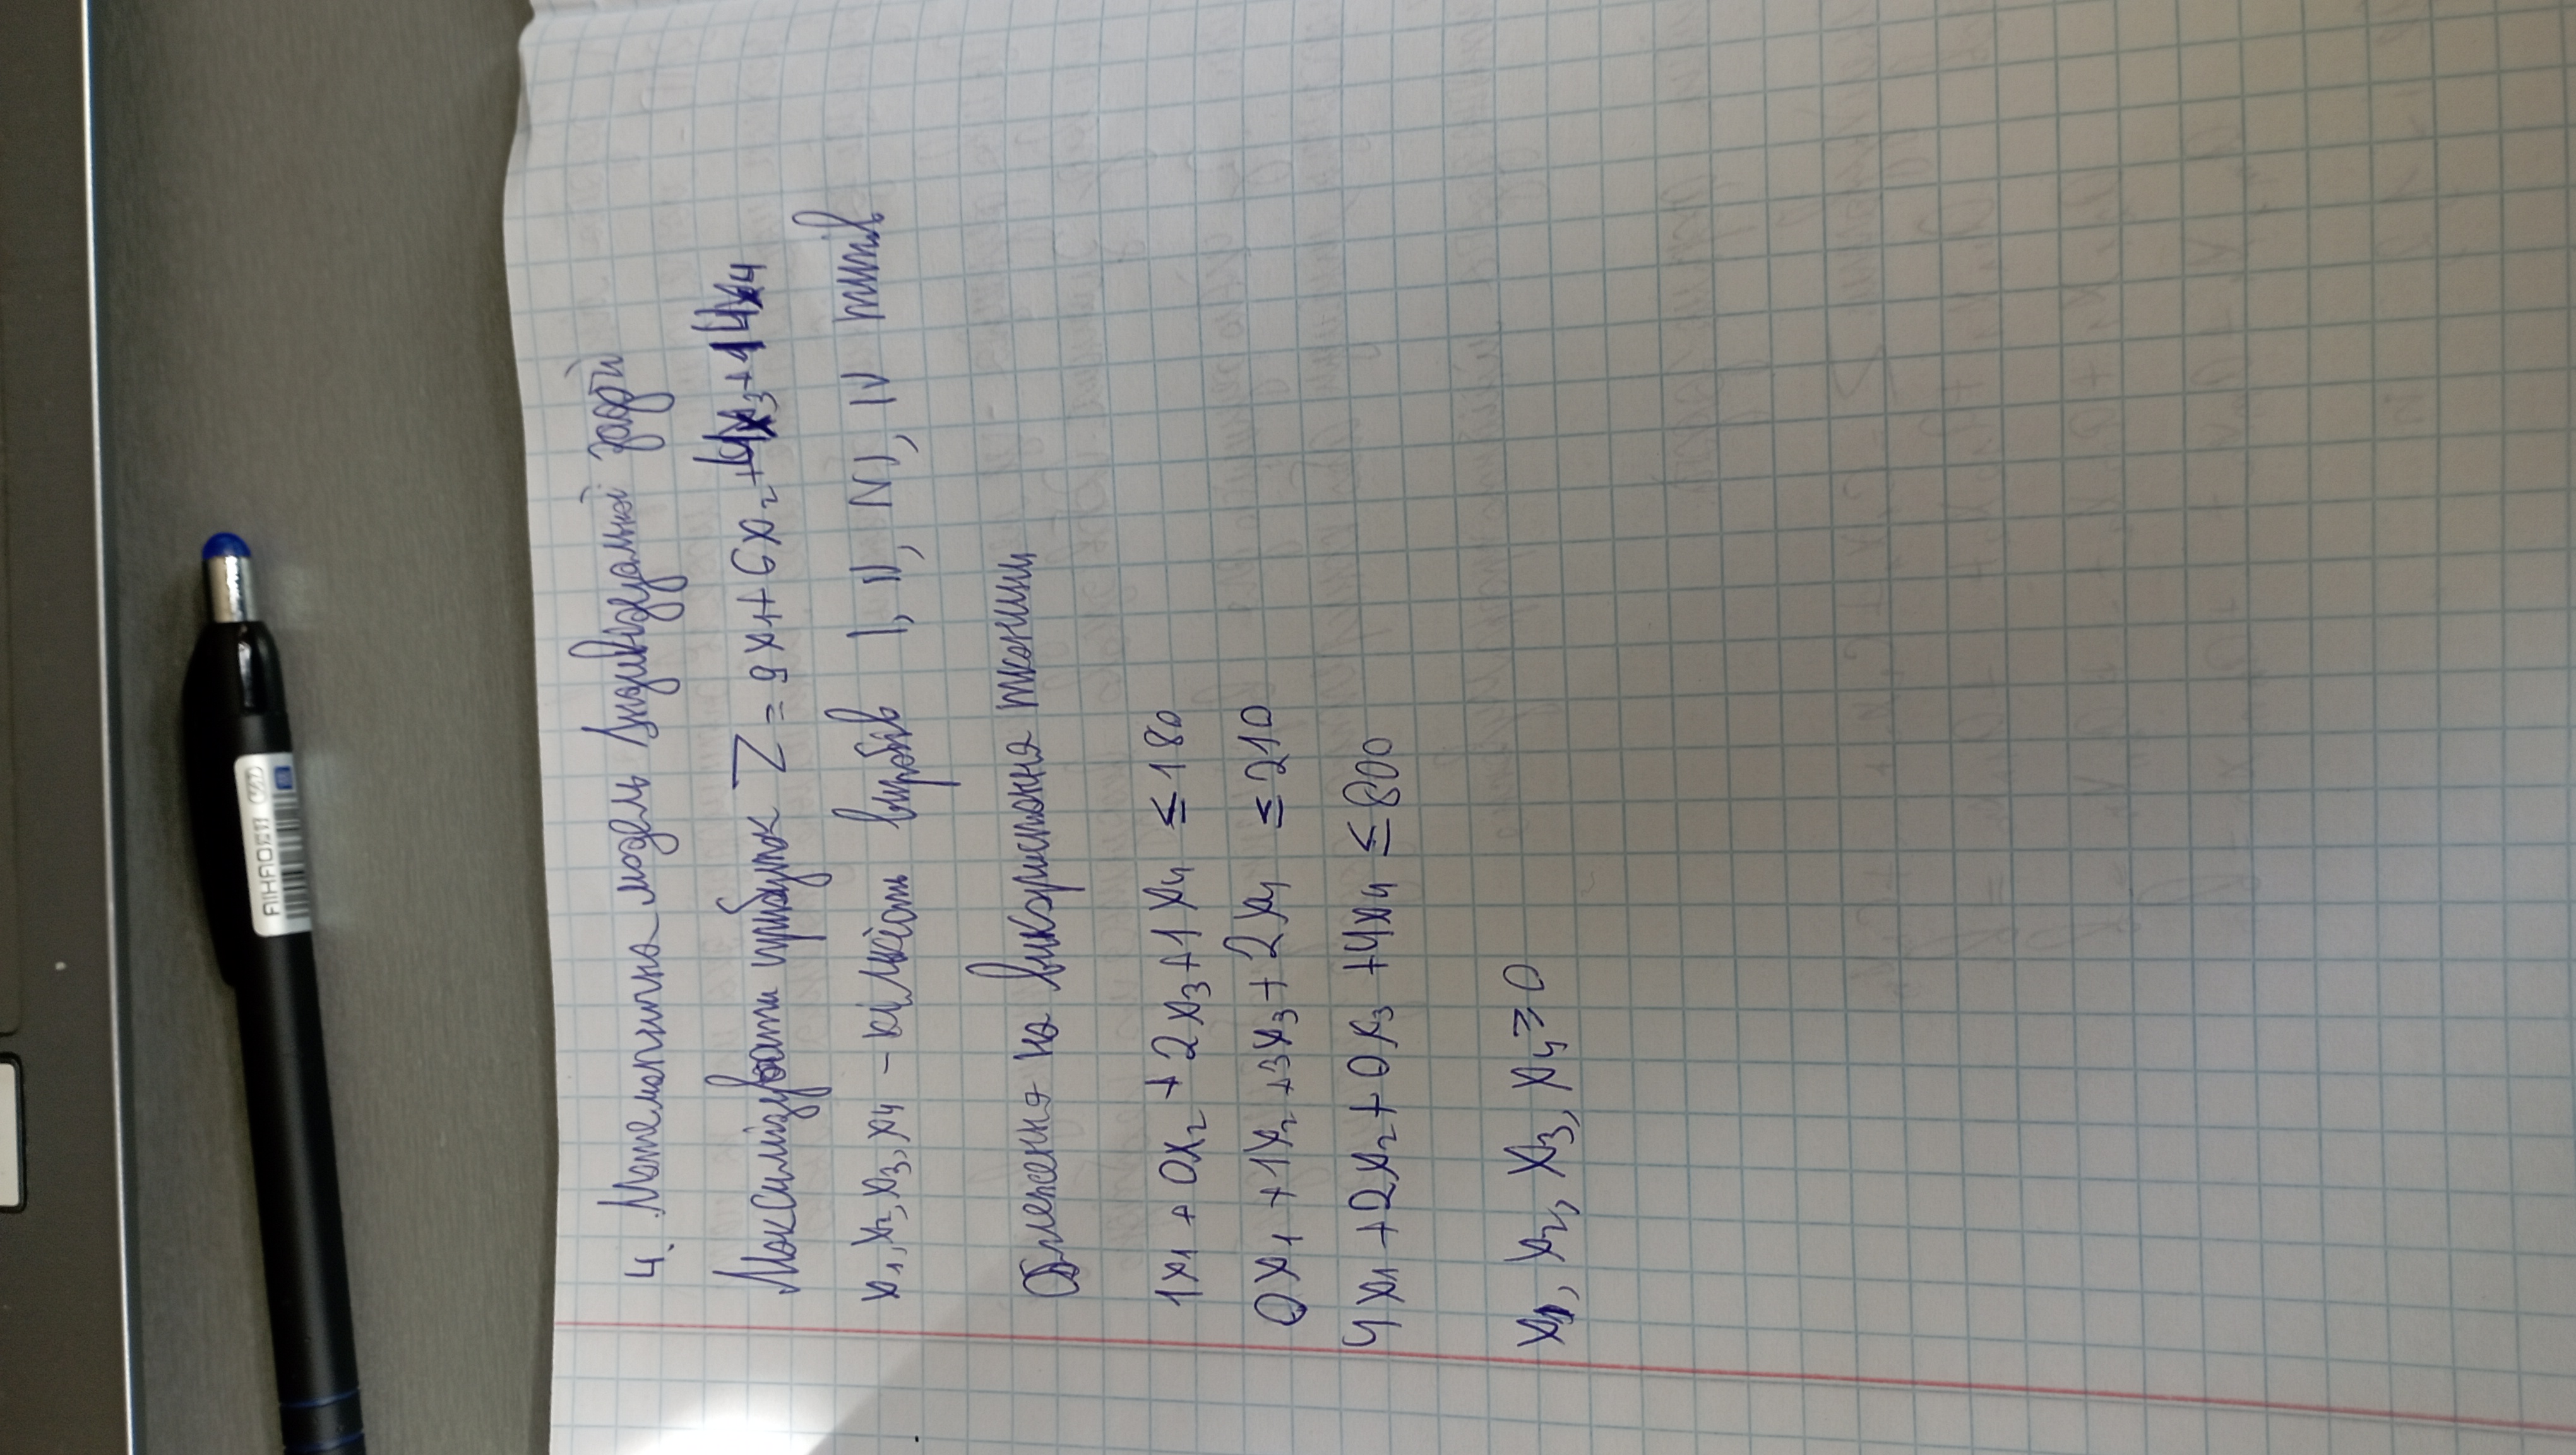 AIHAO
4. Математична модель Індивідуальної задачі
Максимізувати прибуток Z = 9x₁ + 6x₂ + 4x₃ + 14x₄
x₁, x₂, x₃, x₄ – кількість виробів I, II, III, IV типів
Обмеження на використання тканини
1x₁ + 0x₂ + 2x₃ + 1x₄ ≤ 180
0x₁ + 1x₂ + 3x₃ + 2x₄ ≤ 210
4x₁ + 2x₂ + 0x₃ + 4x₄ ≤ 800
x₁, x₂, x₃, x₄ ≥ 0